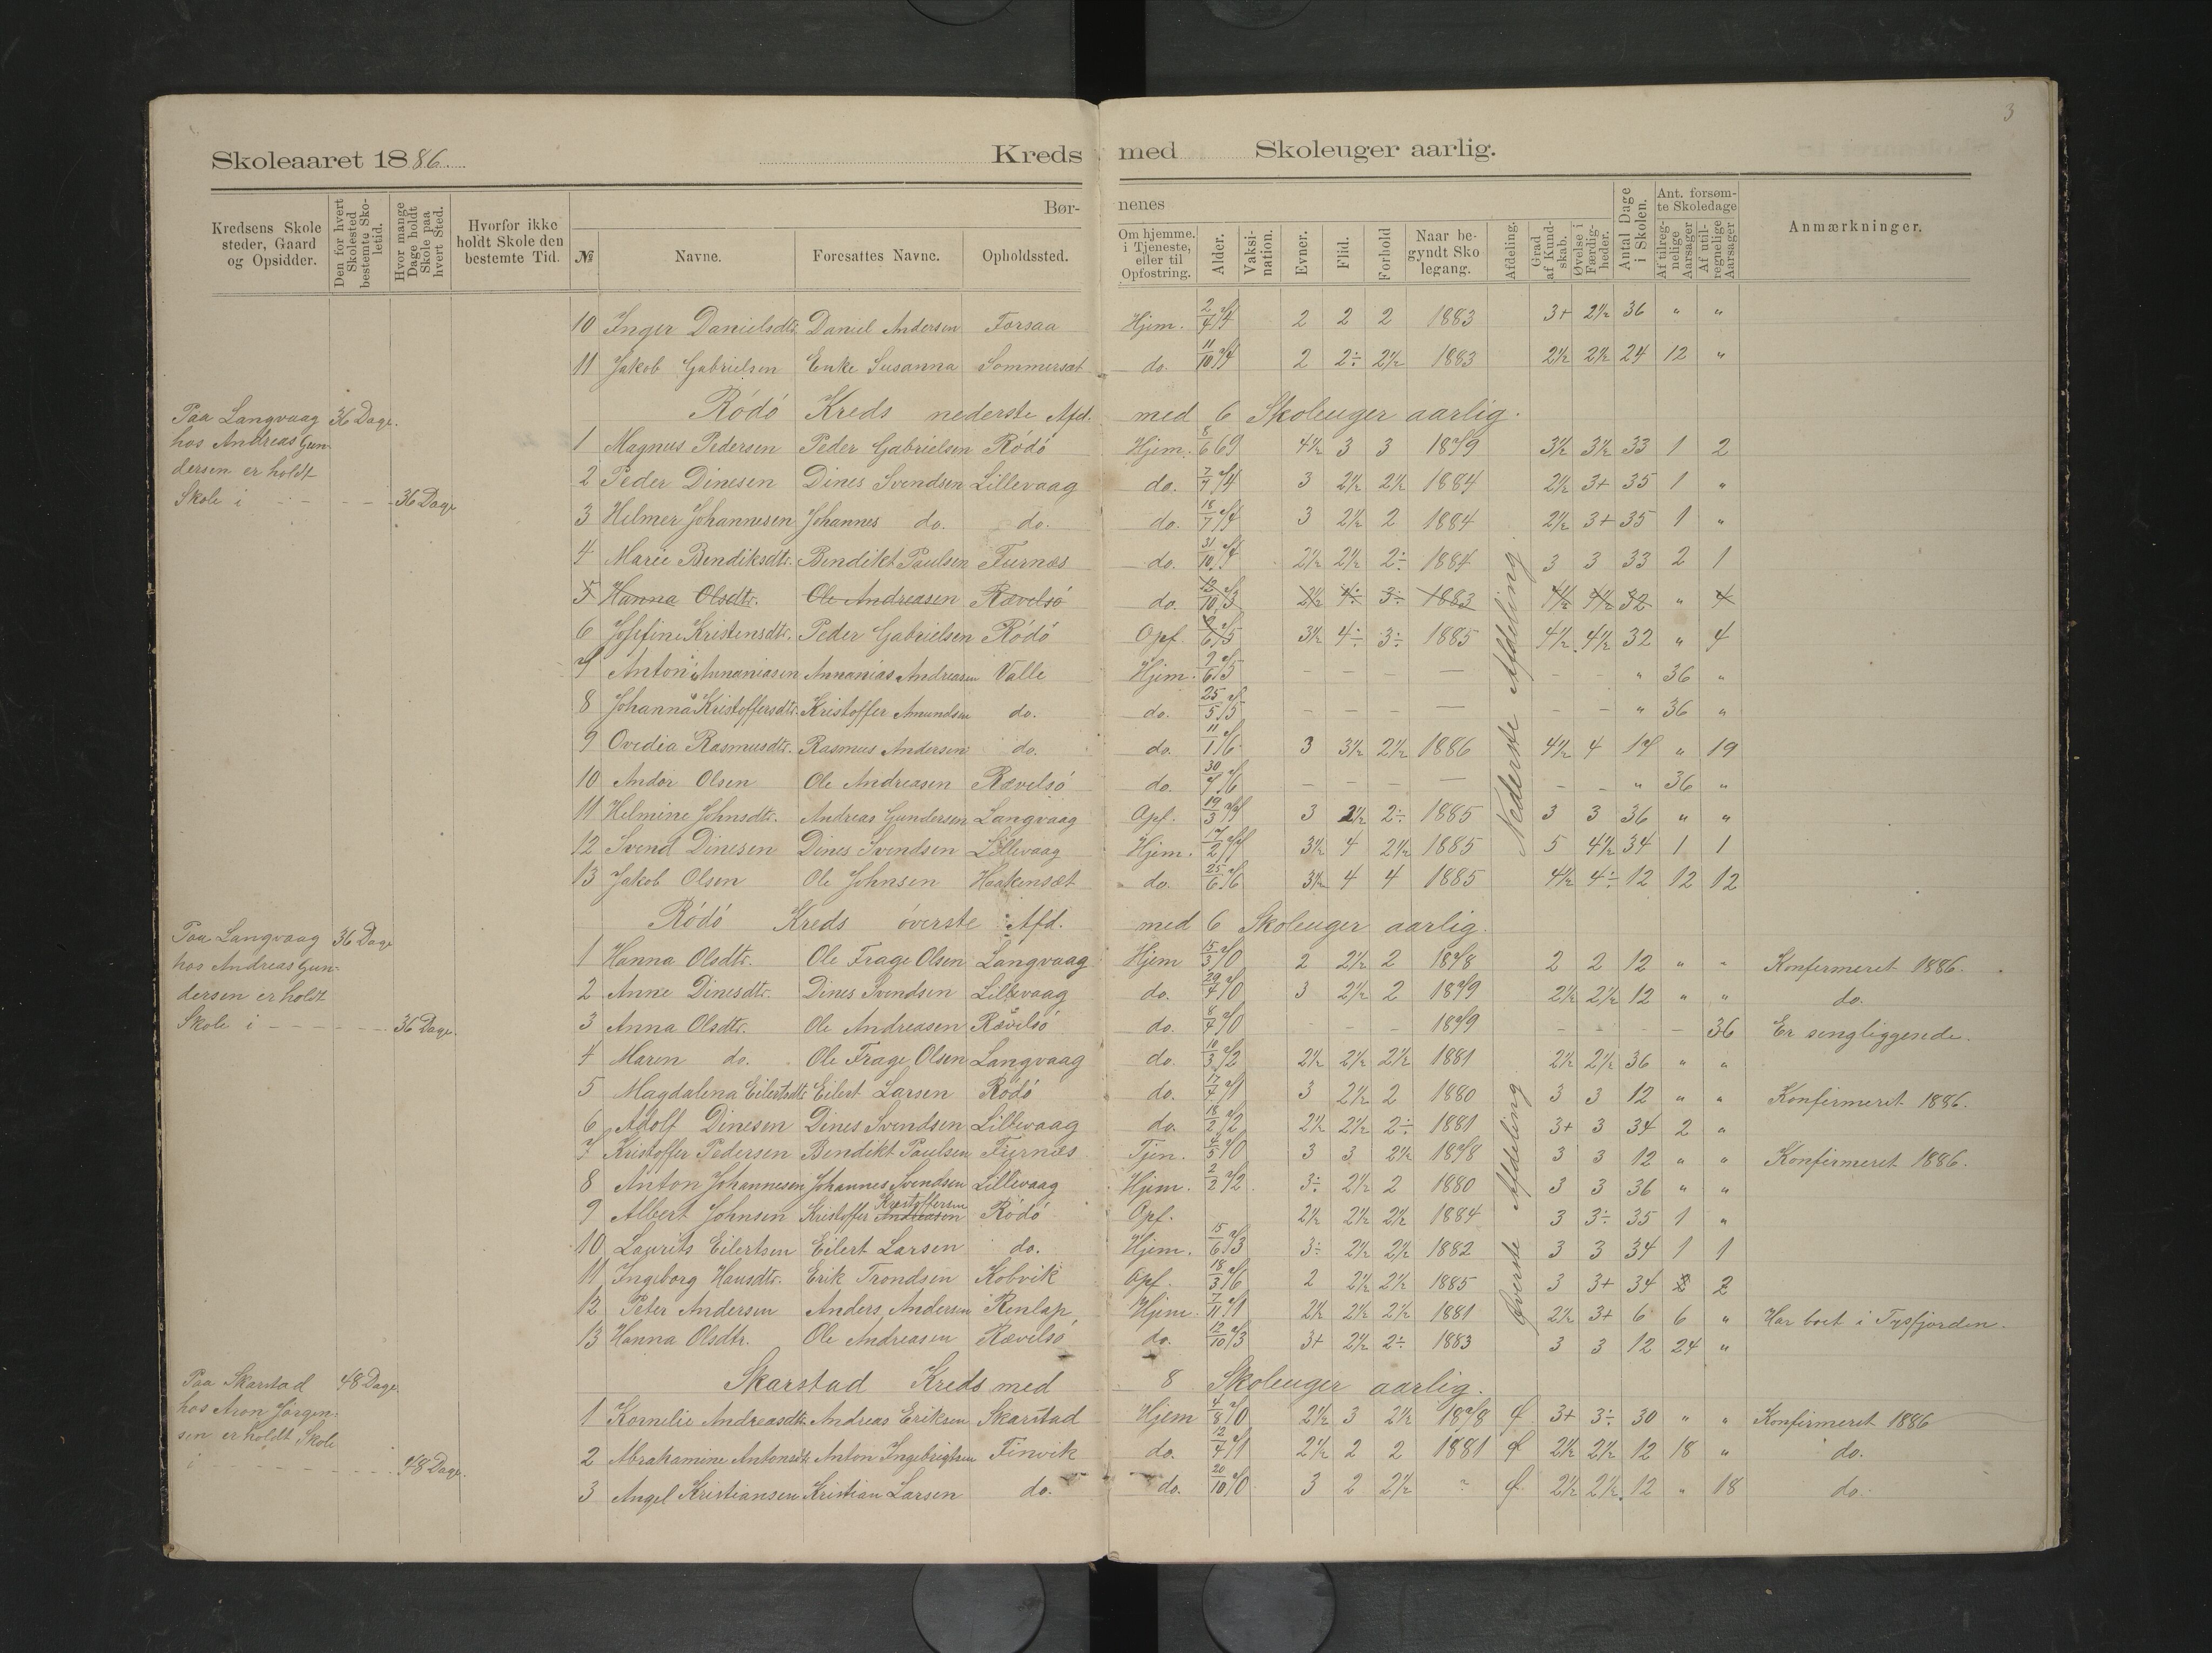 3
Skoleaaret 1886. Kreds med Skoleuger aarlig.
Kredsens Skolesteder, Gaard og Opsidder.
Den for hvert Skolested bestemte Skoletid.
Hvor mange Dage holdt Skole paa hvert Sted.
Hvorfor ikke holdt Skole den bestemte Tid.
Børnenes
№ Navne. Foresattes Navne. Opholdssted.
Om hjemme. i Tjeneste, eller til Opfostring.
Alder. Vaksination. Evner. Flid. Forhold
Naar begyndt Skolegang.
Afdeling. Grad af Kundskab. Øvelse i Færdigheder.
Antal Dage i Skolen.
Ant. forsømte Skoledage
Af tilregnelige Aarsager Af utilregnelige Aarsager
Anmærkninger.
10 Inger Danielsdtr. Daniel Andersen Forsaa Hjem. 2/4 74 2 2 2 1883 3+ 2½ 36 " "
11 Jakob Gabrielsen Enke Susanna Sommersæt do. 11/10 74 2 2÷ 2½ 1883 2½ 2½ 24 12 "
Rödö Kreds nederste Afd. med 6 Skoleuger aarlig.
Paa Langvaag 36 Dage.
hos Andreas Gun-
dersen er holdt
Skole i - - - - 36 Dage
1 Magnus Pedersen Peder Gabrielsen Rödö Hjem. 8/6 69 4½ 3 3 1879 3½ 3½ 33 1 2
2 Peder Dinesen Dines Svendsen Lillevaag do. 7/7 74 3 2½ 2½ 1884 2½ 3+ 35 1 "
3 Helmer Johannesen Johannes do. do. do. 18/7 74 3 2½ 2 1884 2½ 3+ 35 1 "
4 Marie Bendiksdtr. Bendikt Paulsen Furnæs do. 31/10 74 2½ 2½ 2÷ 1884 3 3 33 2 1
5 Hanna Olsdtr. Ole Andreasen Rævelsö do. 12/10 73 2½ 4÷ 3÷ 1883 4½ 4½ 32 " 4
6 Josefine Kristensdtr. Peder Gabrielsen Rödö Opf. 75 3½ 4÷ 3÷ 1885 4½ 4½ 32 " 4
7 Anton Annaniasen Annanias Andreasen Valle Hjem. 75 - - - - - - " 36 "
8 Johanna Kristoffersdtr. Kristoffer Amundsen do. do. 25/5 75 - - - - - - " 36 "
9 Ovedia Rasmusdtr. Rasmus Andersen do. do. 11/1 76 3 3½ 2½ 1886 4½ 4 17 " 19
10 Andor Olsen Ole Andreasen Rævelsö do. 30/7 76 - - - - - - " 36 "
11 Helmine Johnsdtr. Andreas Gundersen Langvaag Opf. 19/3 3 2½ 2÷ 1885 3 3 36 " "
12 Svend Dinesen Dines Svendsen Lillevaag Hjem. 17/2 77 3½ 4 2½ 1885 5 4½ 34 1 1
13 Jakob Olsen Ole Johnsen Haakensæt do. 25/6 76 3½ 4 4 1885 4½ 4÷ 12 12 12
Nederste Afdeling
Rödö Kreds överste Afd. med 6 Skoleuger aarlig.
Paa Langvaag 36 Dage
hos Andreas Gun-
dersen er holdt
Skole i - - - - - 36 Dage.
1 Hanna Olsdtr. Ole Frage Olsen Langvaag Hjem 15/3 70 2 2½ 2 1878 2 2 12 " " Konfirmeret 1886.
2 Anne Dinesdtr. Dines Svendsen Lillevaag do. 29/4 70 3 2½ 2 1879 2½ 2½ 12 " " do.
3 Anna Olsdtr. Ole Andreasen Rævelsö do. 8/4 70 - - - 1879 - - - - 36 Er sengliggende.
4 Maren do. Ole Frage Olsen Langvaag do. 10/3 72 2½ 2½ 2½ 1881 2½ 2½ 36 " "
5 Magdalena Eilertsdtr. Eilert Larsen Rödö do. 17/4 71 3 2½ 2 1880 3 3 12 " " Konfirmeret 1886.
6 Adolf Dinesen Dines Svendsen Lillevaag do. 18/2 72 2½ 2½ 2÷ 1881 3+ 3 34 2 "
7 Kristoffer Pedersen Bendikt Paulsen Furnæs Tjen. 4/5 70 3 3 2½ 1878 3 3 12 " " Konfirmeret 1886.
8 Anton Johannesen Johannes Svendsen Lillevaag Hjem. 2/2 72 3÷ 2½ 2 1880 3 3 36 " "
9 Albert Johnsen Kristoffer Andreasen Kristoffersen Rödö Opf. 2½ 2½ 2½ 1884 3 3÷ 35 1 "
10 Laurits Eilertsen Eilert Larsen do. Hjem. 15/6 73 3÷ 2½ 2½ 1882 3 3 34 1 1
11 Ingeborg Hansdtr. Erik Trondsen Kobvik Opf. 18/3 76 2 2½ 2½ 1885 3 3+ 34 2 2
12 Peter Andersen Anders Andersen Renlap Hjem. 7/11 71 2½ 2½ 2½ 1881 2½ 3+ 6 6 " Har boet i Tysfjorden.
13 Hanna Olsdtr. Ole Andreasen Rævelsö do. 12/10 73 3+ 2½ 2÷ 1883 3 3 12 24 "
Överste Afdeling
Skarstad Kreds med 8 Skoleuger aarlig.
Paa Skarstad 48 Dage.
hos Aron Jörgen-
sen er holdt Skole
i - - - - - - 48 Dage.
1 Kornelie Andreasdtr. Andreas Eriksen Skarstad Hjem 4/8 70 2½ 3 2½ 1878 3+ 3÷ 30 " " Konfirmeret 1886
2 Abrahamine Antonsdtr. Anton Ingebrigtsen Finvik do. 12/4 71 2½ 2 2 1881 2½ 2½ 12 18 " do.
3 Angel Kristiansen Kristian Larsen do. do. 20/10 70 3 2 2½ ? 2½ 2½ 12 " 18 do.